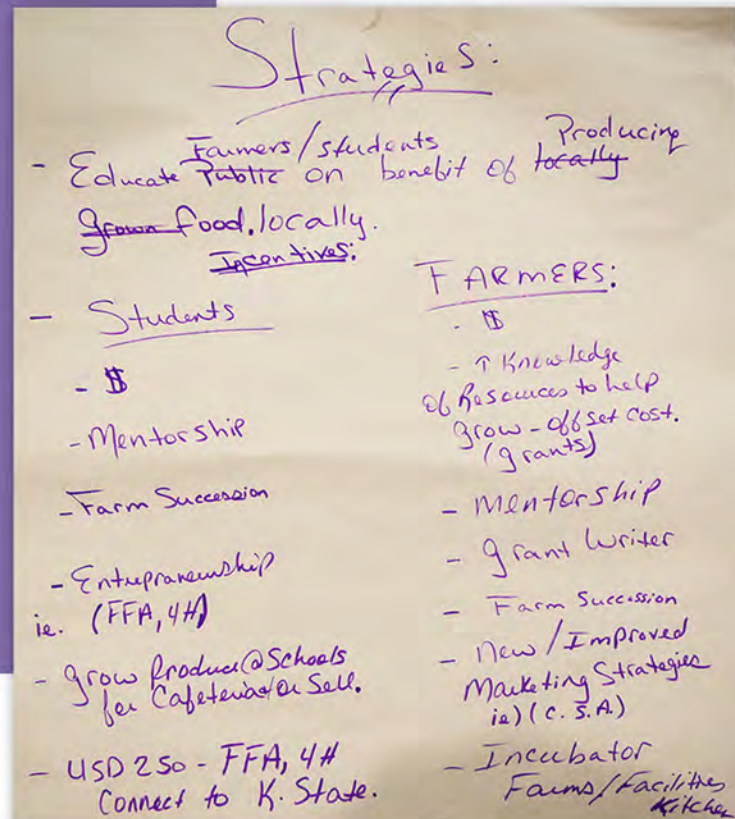 Strategies:
Farmers/students Producing
- Educate Public on benefit of locally
grown food. locally.
Incentives:
- Students
- $
- Mentorship
- Farm Succession
- Entrepraneurship
ie. (FFA, 4H)
- grow Produce @ Schools
for Cafeteria &/or Sell.
- USD 250 - FFA, 4H
Connect to K. State.
FARMERS:
- $
- ↑ Knowledge
of Resources to help
grow - offset cost.
(grants)
- Mentorship
- grant Writer
- Farm Succession
- New / Improved
Marketing Strategies
ie) (C. S. A.)
- Incubator
Farms/Facilities
Kitchen